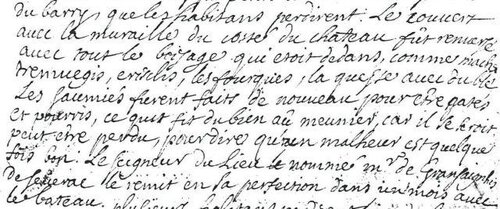 du barry, que les habitans perdirent. Le couvert
avec la muraille du costé du chateau fût renversé
avec tout le boisage qui etoit dedans, comme
tremuegis, les fourques, la quesse avec du blé
Les saumiés furent faits de nouveau pour etre gatés
et pourris, ce qui fit du bien au meunier, car il seroit
peut etre perdu, pour dire qu'un malheur est quelque
fois bon. Le seigneur du Lieu nommé mr de
de severac le remit en sa perfection dans un mois avec
le bateau. plusieurs